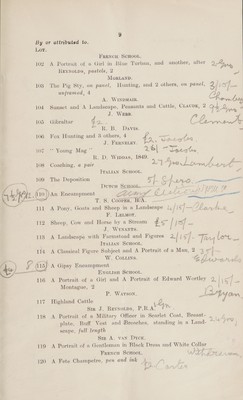 9
By or attributed to.
LOT.
FRENCH SCHOOL.
102 A Portrait of a Girl in Blue Turban, and another, after
REYNOLDS, pastels, 2
MORLAND.
103 The Pig Sty, on panel, Hunting, and 2 others, on panel,
unframed, 4
A. WINDMAIR.
104 Sunset and A Landscape, Peasants and Cattle, CLAUDE, 2
J. WEBB.
105 Gibraltar £2 Clements
R. B. DAVIS
106 Fox Hunting and 3 others, 4 £2 Jacobs
J. FERNELEY.
107 "Young Mag" 26/- Jacobs
R. D. WIDDAS, 1849.
108 Coaching, a pair 27 Gns Lambert
ITALIAN SCHOOL.
109 The Deposition 5/- Spero
DUTCH SCHOOL.
110 An Encampment
T. S. COOPER, R.A.
111 A Pony, Goats and Sheep in a Landscape 4/15/- Clarke
F. LELROY.
112 Sheep, Cow and Horse by a Stream £5/15/-
J. WYNANTS.
113 A Landscape with Farmstead and Figures 2/15/- Taylor
ITALIAN SCHOOL.
114 A Classical Figure Subject and A Portrait of a Man, 2 25/-
Edwards
W. COLLINS.
115 A Gipsy Encampment
ENGLISH SCHOOL.
116 A Portrait of a Girl and A Portrait of Edward Wortley 2/15/-
Montague, 2 Bryan
P. WATSON.
117 Highland Cattle 1 Gn
SIR J. REYNOLDS, P.R.A.
118 A Portrait of a Military Officer in Scarlet Coat, Breast-
plate, Buff Vest and Breeches, standing in a Land-
scape, full length
SIR A. VAN DYCK.
119 A Portrait of a Gentleman in Black Dress and White Collar
FRENCH SCHOOL. Waterman
120 A Fete Champetre, pen and ink